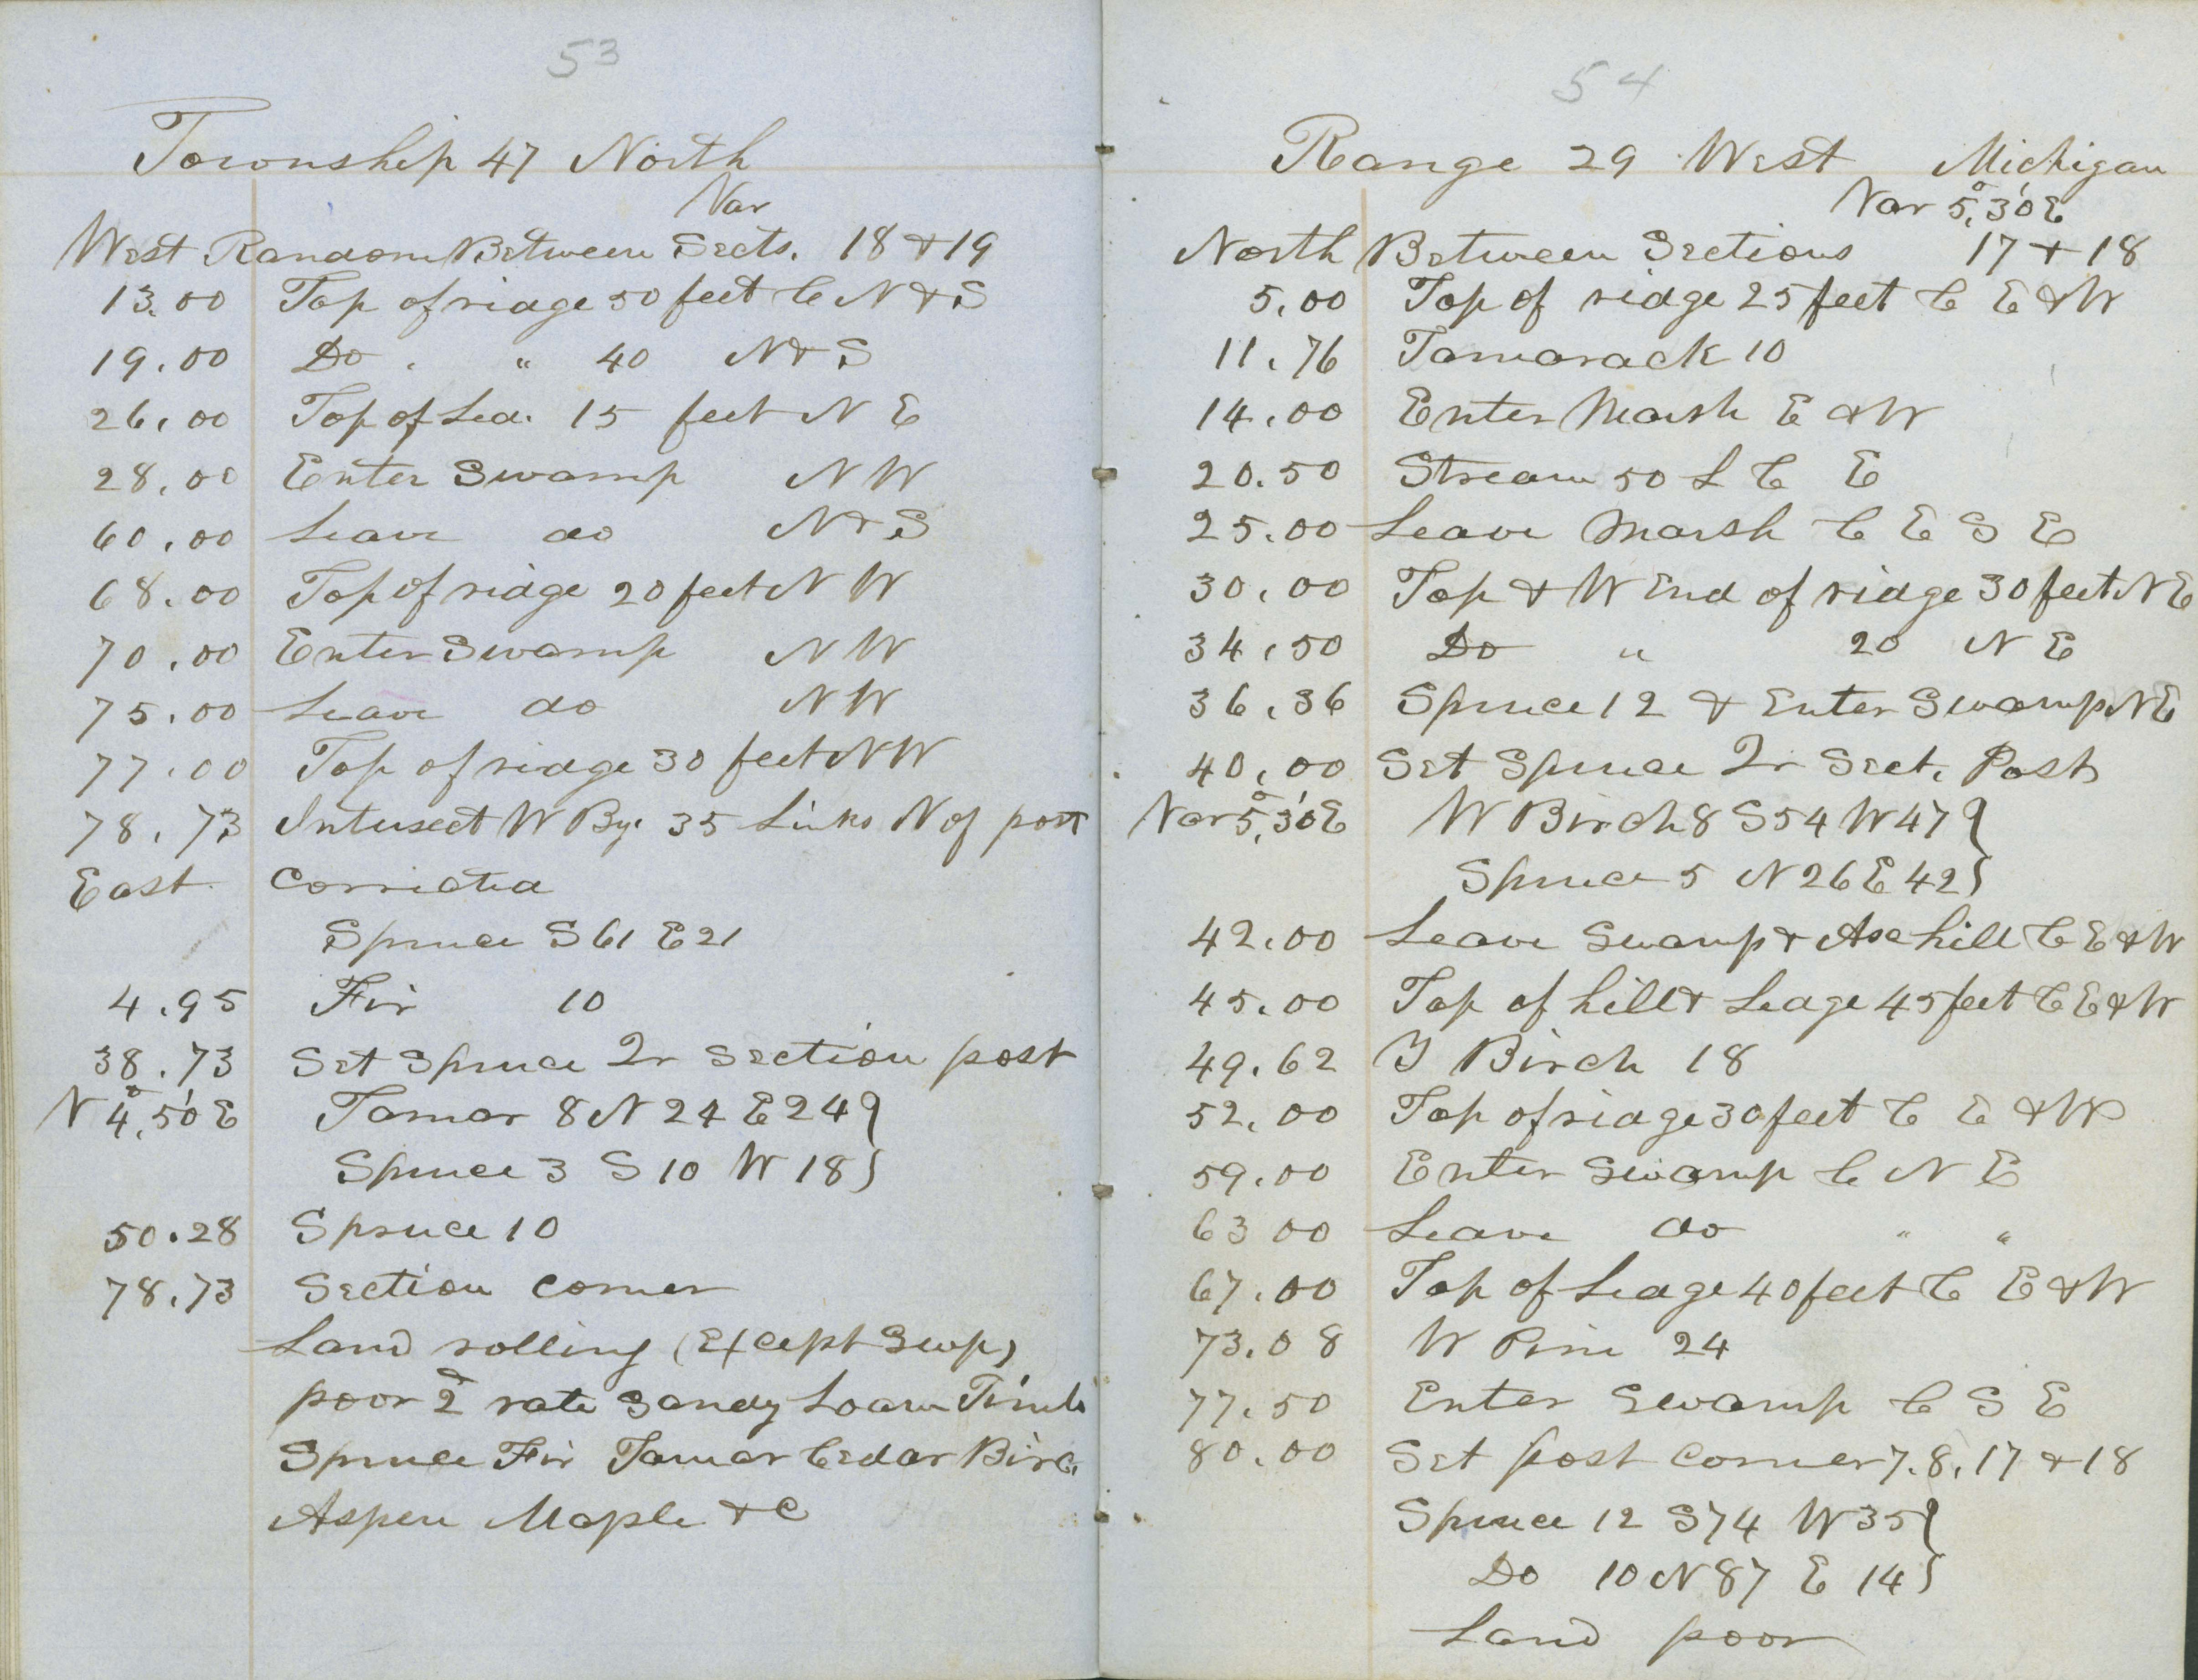 53
Township 47 North
Var
West Random Between Sects. 18 & 19
13.00 Top of ridge 50 feet C N & S
19.00 Do . " 40 N & S
26.00 Top of Led. 15 feet N E
28.00 Enter Swamp N W
60.00 Leave do N & S
68.00 Top of ridge 20 feet N W
70.00 Enter Swamp N W
75.00 Leave do N W
77.00 Top of ridge 30 feet N W
78.73 Intersect W By. 35 Links N of post
East Corrected
Spruce S 61 E 21
4.95 Fir 10
38.73 Set Spruce Qr Section post
N 4°, 50' E Tamar 8 N 24 E 24 }
Spruce 3 S 10 W 18 }
50.28 Spruce 10
78.73 Section Corner
Land rolling (Except Swp)
poor 2d rate Sandy Loam Timb
Spruce Fir Tamar Cedar Birc.
Aspen Maple & C
54
Range 29 West Michigan
Var 5°, 30' E
North Between Sections 17 & 18
5.00 Top of ridge 25 feet C E & W
11.76 Tamarack 10
14.00 Enter Marsh E & W
20.50 Stream 50 L C E
25.00 Leave Marsh C E S E
30.00 Top & W End of ridge 30 feet N E
34.50 Do " 20 N E
36.36 Spruce 12 & Enter Swamp N E
40.00 Set Spruce Qr Sect. Post
Var 5°, 30' E W Birch 8 S 54 W 47 }
Spruce 5 N 26 E 42 }
42.00 Leave Swamp & Asc hill C E & W
45.00 Top of hill & Ledge 45 feet C E & W
49.62 Y Birch 18
52.00 Top of ridge 30 feet C E & W
59.00 Enter Swamp C N E
63 00 Leave do " "
67.00 Top of Ledge 40 feet C E & W
73.08 W Pine 24
77.50 Enter Swamp C S E
80.00 Set post Corner 7.8.17 & 18
Spruce 12 S 74 W 35 }
Do 10 N 87 E 14 }
Land poor